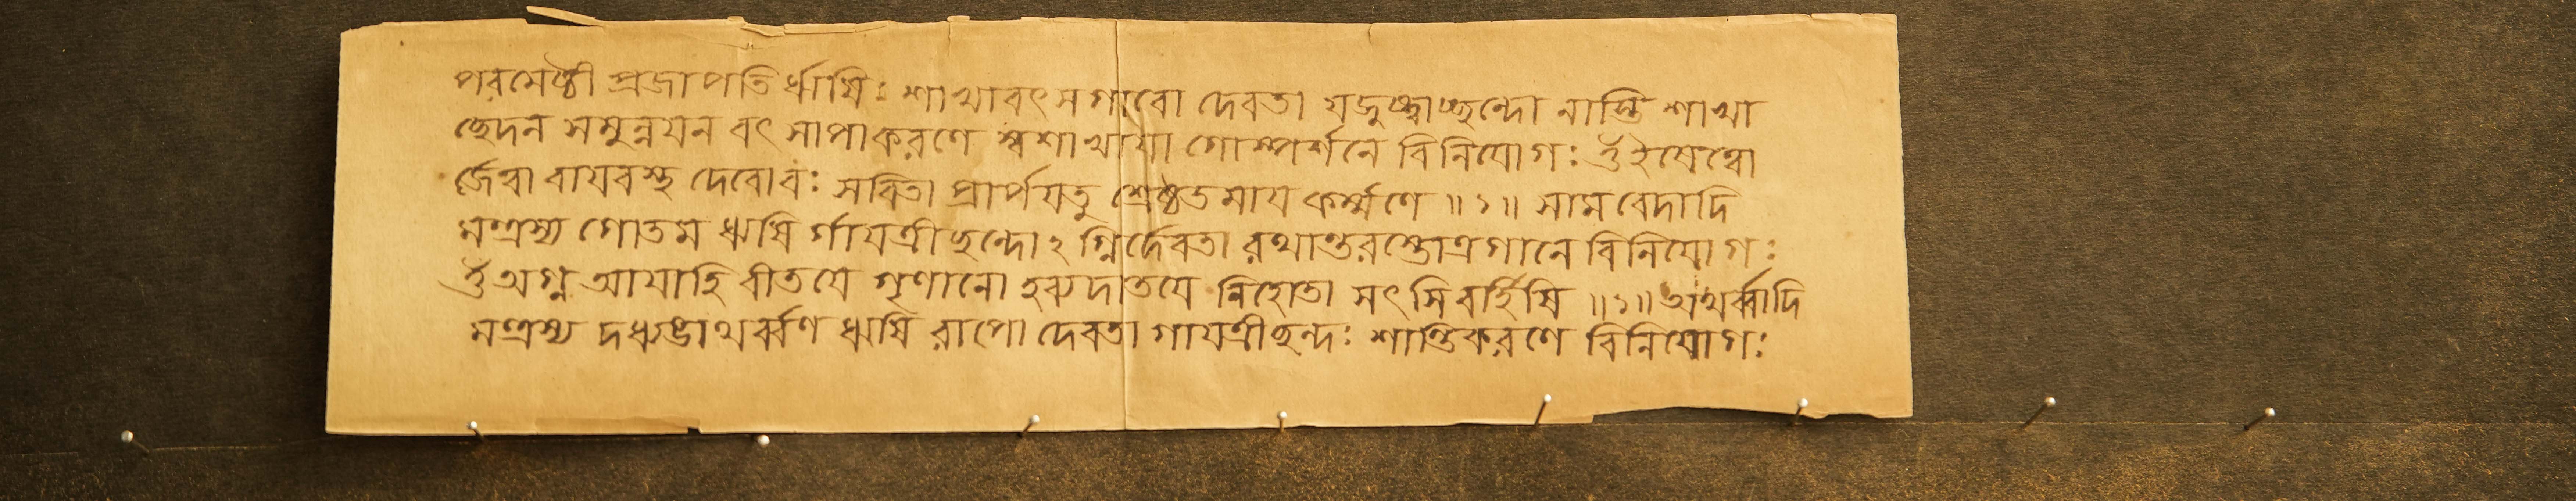 পরমেষ্ঠী প্রজাপতি র্ঋষিঃ শাখাবৎ সগাবো দেবতা যজুষ্ট্বাচ্ছন্দো নাস্তি শাখা
ছেদন সমুন্নয়ন বৎ সাপাকরণে স্বশাখায়া গোস্পর্শনে বিনিযোগঃ ওঁ ইষেত্বো
র্জেত্বা বায়বস্থ দেবোবঃ সবিতা প্রার্পয়তু শ্রেষ্ঠতমায় কর্ম্মণে ॥১॥ সাম বেদাদি
মন্ত্রস্য গোতম ঋষি র্গায়ত্রী ছন্দোঽ গ্নির্দেবতা রথান্তরস্তোত্রগানে বিনিযোগঃ
ওঁ অগ্ন আয়াহি বীতয়ে গৃণানো হব্যদাতয়ে নিহোতা সৎ সি বর্হিষি ॥১॥ অথর্ব্বাদি
মন্ত্রস্য দধ্যঙাথর্ব্বণ ঋষি রাপো দেবতা গায়ত্রীছন্দঃ শান্তিকরণে বিনিযোগঃ